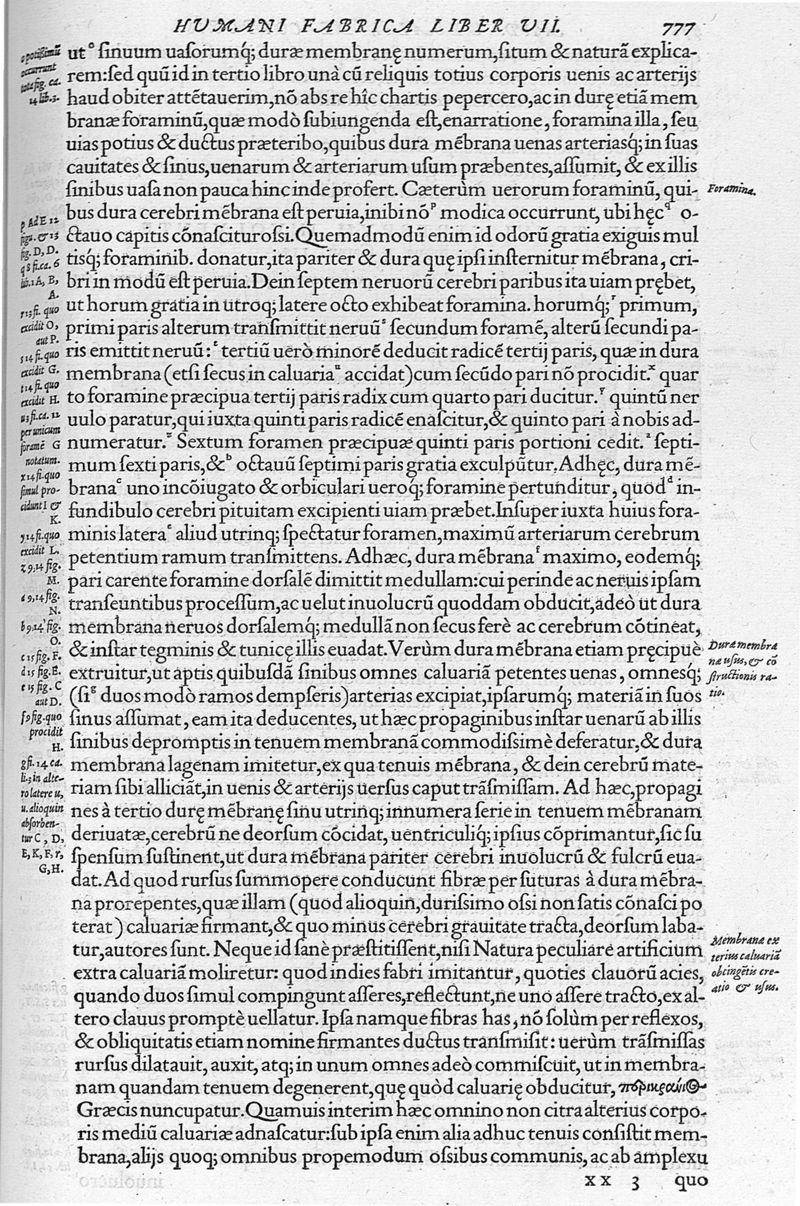 HVMANI FABRICA LIBER VII. 777
ut° sinuum uasorumq́; duræ membranę numerum, situm & naturā explica-
rem: sed quū id in tertio libro unà cū reliquis totius corporis uenis ac arterijs
haud obiter attētauerim, nō abs re hîc chartis pepercero, ac in durę etiā mem
branæ foraminū, quæ modò subiungenda est, enarratione, foramina illa, seu
uias potius & ductus præteribo, quibus dura mēbrana uenas arteriasq́; in suas
cauitates & sinus, uenarum & arteriarum usum præbentes, assumit, & ex illis
sinibus uasa non pauca hinc inde profert. Cæterùm uerorum foraminū, qui-
bus dura cerebri mēbrana est peruia, inibi nōᵖ modica occurrunt, ubi hęcᑫ o-
ctauo capitis cōnascitur ossi. Quemadmodū enim id odorū gratia exiguis mul
tisq́; foraminib. donatur, ita pariter & dura quę ipsi insternitur mēbrana, cri-
bri in modū est peruia. Dein septem neruorū cerebri paribus ita uiam prębet,
ut horum gratia in utroq; latere octo exhibeat foramina. horumq́;ʳ primum,
primi paris alterum transmittit neruūˢ secundum foramē, alterū secundi pa-
ris emittit neruū:ᵗ tertiū uerò minorē deducit radicē tertij paris, quæ in dura
membrana (etsi secus in caluariaᵘ accidat) cum secūdo pari nō procidit.ˣ quar
to foramine præcipua tertij paris radix cum quarto pari ducitur.ʸ quintū ner
uulo paratur, qui iuxta quinti paris radicē enascitur, & quinto pari à nobis ad-
numeratur.ᶻ Sextum foramen præcipuæ quinti paris portioni cedit.ᵃ septi-
mum sexti paris, &ᵇ octauū septimi paris gratia exculpūtur. Adhęc, dura mē-
branaᶜ uno incōiugato & orbiculari ueroq́; foramine pertunditur, quodᵈ in-
fundibulo cerebri pituitam excipienti uiam præbet. Insuper iuxta huius fora-
minis lateraᵉ aliud utrinq; spectatur foramen, maximū arteriarum cerebrum
petentium ramum transmittens. Adhæc, dura mēbranaᶠ maximo, eodemq́;
pari carente foramine dorsalē dimittit medullam: cui perinde ac neruis ipsam
transeuntibus processum, ac uelut inuolucrū quoddam obducit, adeò ut dura
membrana neruos dorsalemq́; medullā non secus ferè ac cerebrum cōtineat,
& instar tegminis & tunicę illis euadat. Verùm dura mēbrana etiam pręcipuè
extruitur, ut aptis quibusdā sinibus omnes caluariā petentes uenas, omnesq́;
(siᵍ duos modò ramos dempseris) arterias excipiat, ipsarumq́; materiā in suos
sinus assumat, eam ita deducentes, ut hæc propaginibus instar uenarū ab illis
sinibus depromptis in tenuem membranā commodissimè deferatur, & dura
membrana lagenam imitetur, ex qua tenuis mēbrana, & dein cerebrū mate-
riam sibi alliciāt, in uenis & arterijs uersus caput trāsmissam. Ad hæc, propagi
nes à tertio durę mēbranę sinu utrinq; innumera serie in tenuem mēbranam
deriuatæ, cerebrū ne deorsum cōcidat, uentriculiq́; ipsius cōprimantur, sic su
spensum sustinent, ut dura mēbrana pariter cerebri inuolucrū & fulcrū eua-
dat. Ad quod rursus summopere conducunt fibræ per suturas à dura mēbra-
na prorepentes, quæ illam (quod alioquin, durissimo ossi non satis cōnasci po
terat) caluariæ firmant, & quo minus cerebri grauitate tracta, deorsum laba-
tur, autores sunt. Neque id sanè præstitissent, nisi Natura peculiare artificium
extra caluariā moliretur: quod indies fabri imitantur, quoties clauorū acies,
quando duos simul compingunt asseres, reflectunt, ne uno assere tracto, ex al-
tero clauus promptè uellatur. Ipsa namque fibras has, nō solùm per reflexos,
& obliquitatis etiam nomine firmantes ductus transmisit: uerùm trāsmissas
rursus dilatauit, auxit, atq; in unum omnes adeò commiscuit, ut in membra-
nam quandam tenuem degenerent, quę quòd caluarię obducitur, περικράνιος
Græcis nuncupatur. Quamuis interim hæc omnino non citra alterius corpo-
ris mediū caluariæ adnascatur: sub ipsa enim alia adhuc tenuis consistit mem-
brana, alijs quoq; omnibus propemodum ossibus communis, ac ab amplexu
xx 3 quo
o potissimū
occurrunt
tota fig. ca.
14 lib. 3.
p Ad E 12
figu. & 13
fig. D, D.
q 8 fi. ca. 6
lib. 1 A, B,
A.
r 13 fi. quo
excidit O,
aut P.
s 14 fi. quo
excidit G.
t 14 fi. quo
excidit H.
u 3 fi. ca. 12
per unicum
foramē G
notatum.
x 14 fi. quo
simul pro-
cidunt I &
K.
y 14 fi. quo
excidit L.
z 9, 14 fig.
M.
a 9, 14 fig.
N.
b 9. 14 fig.
O.
c 15 fig. F.
d 15 fig. E.
e 15 fig. C
aut D.
f 9 fig. quo
procidit
H.
g fi. 14 ca.
li. 3 in alte-
ro latere u,
u. alioquin
absorben-
tur C, D,
E, K, F, r,
G, H.
Foramina.
Duræ membra
næ usus, & cō
structionis ra-
tio.
Membranæ ex
terius caluariā
obcingētis cre-
atio & usus.